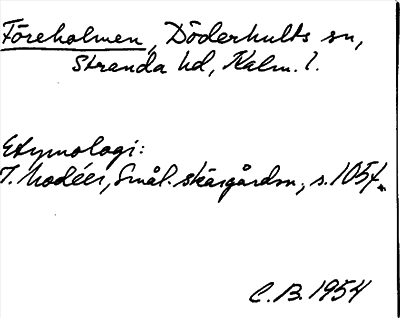 Föreholmen, Döderhults sn,
Stranda hd, Kalm. l.
Etymologi:
I. Modéer, Smål. skärgårdsn., s. 105 f.
C.B. 1954